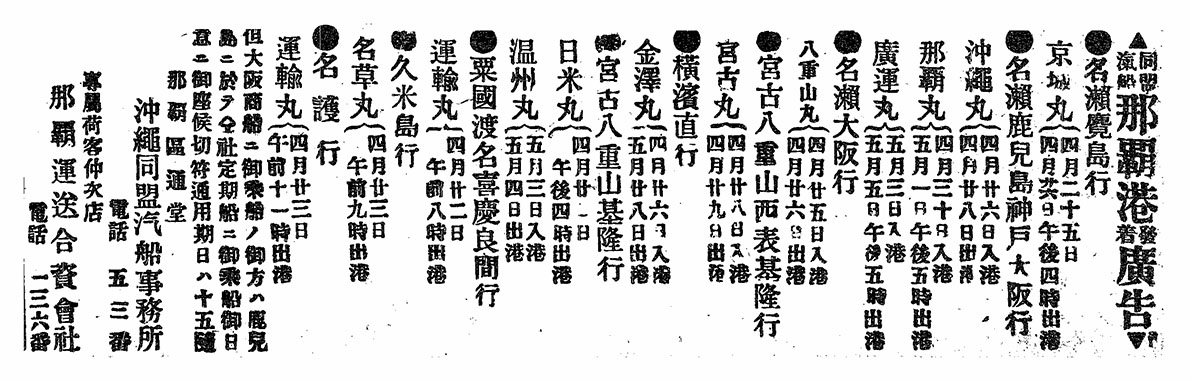 ▲同盟滊船那覇港發着廣告▼
●名瀨鹿島行
京城丸 四月二十五日
四月廿六日午後四時出港
●名瀨鹿兒島神戶大阪行
沖繩丸 四月廿六日入港
四月廿八日出港
那覇丸 四月三十日入港
五月一日午後五時出港
廣運丸 五月三日入港
五月五日午後五時出港
●名瀨大阪行
八重山丸 四月廿五日入港
四月廿六日出港
●宮古八重山西表基隆行
宮古丸 四月廿八日入港
四月廿九日出港
●橫濱直行
金澤丸 四月廿六日入港
五月廿八日出港
●宮古八重山基隆行
日米丸 四月廿一日
午後四時出港
溫州丸 五月三日入港
五月四日出港
●粟國渡名喜慶良間行
運輸丸 四月廿二日
午前八時出港
●久米島行
名草丸 四月廿三日
午前九時出港
●名護行
運輸丸 四月廿三日
午前十一時出港
但大阪商船ニ御乘船ノ御方ハ鹿兒
島ニ於テ仝社定期船ニ御乘船御日
意ニ御座候切符通用期日ハ十五隨
那覇區通堂
沖繩同盟汽船事務所
電話 五三番
專屬荷客仲次店
那覇運送合資會社
電話 一三六番